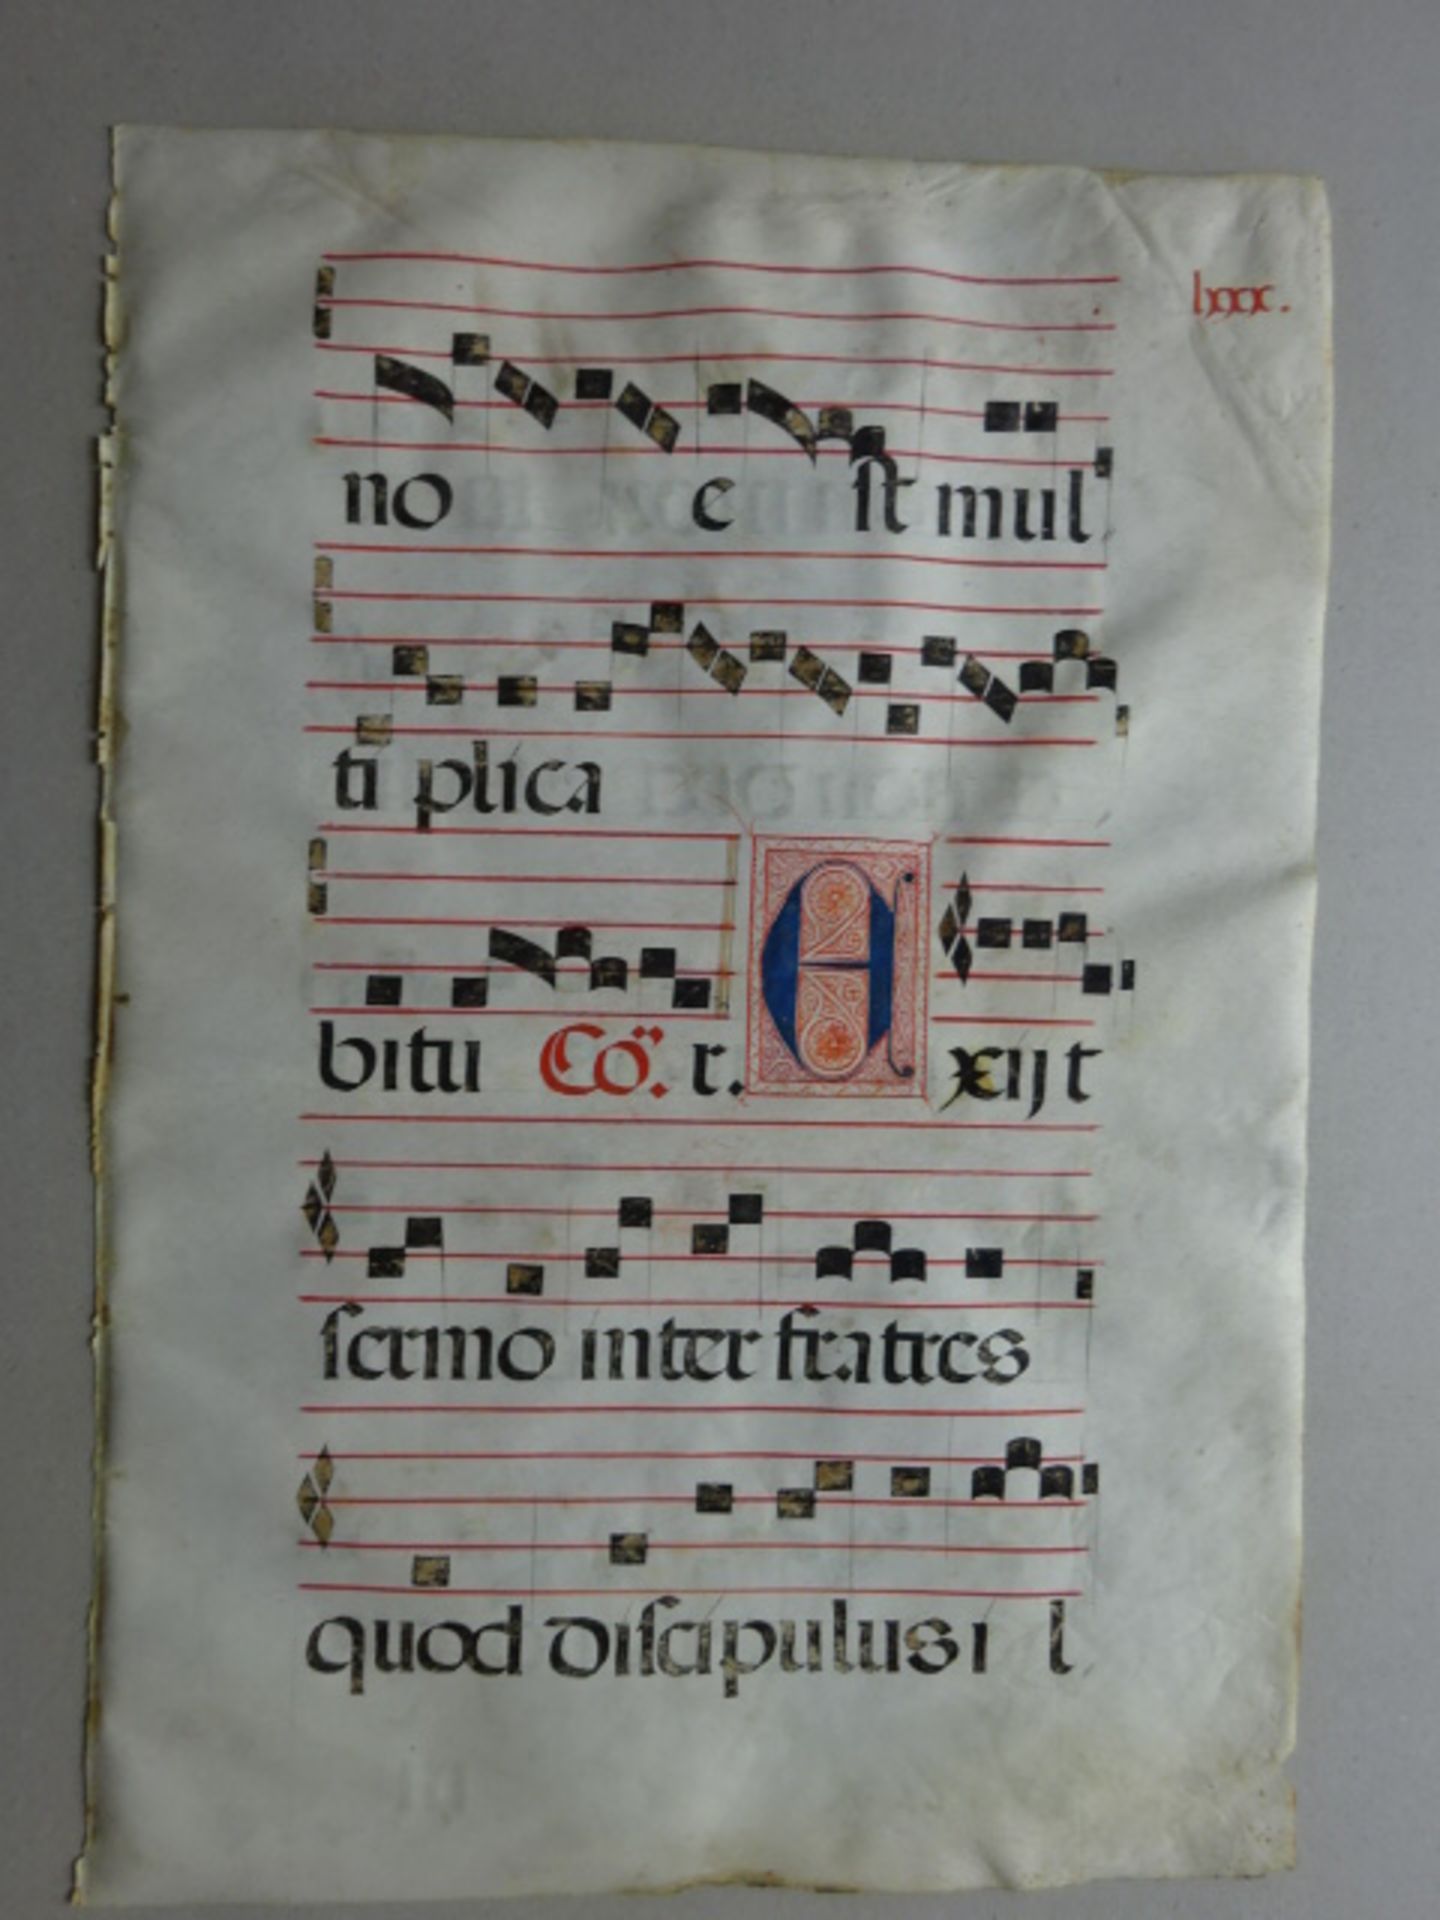 lxxx.
no e st mul
ti plica
bitu Cō. r. Exijt
sermo inter fratres
quod discipulus i l